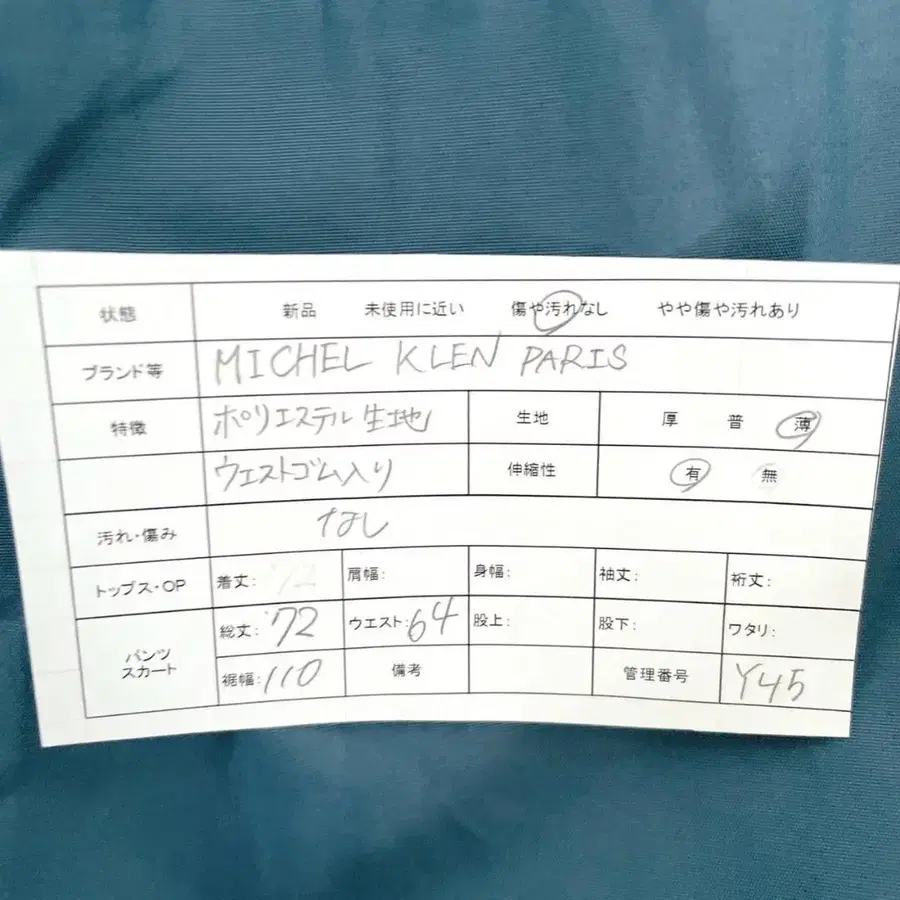 状態 新品 未使用に近い 傷や汚れなし やや傷や汚れあり
ブランド等 MICHEL KLEN PARIS
特徴 ポリエステル生地 生地 厚 普 薄
ウェストゴム入り 伸縮性 有 無
汚れ・傷み なし
トップス・OP 着丈: 肩幅: 身幅: 袖丈: 裄丈:
パンツ スカート 総丈: 72 ウエスト: 64 股上: 股下: ワタリ:
裾幅: 110 備考 管理番号 Y45